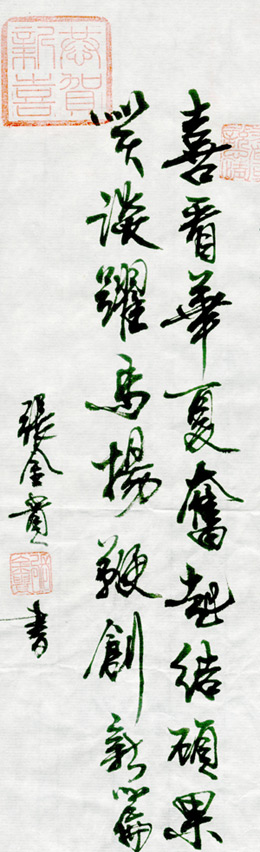 恭賀新喜
喜看華夏奮起結碩果
笑談躍馬揚鞭創新篇
張金貴
書